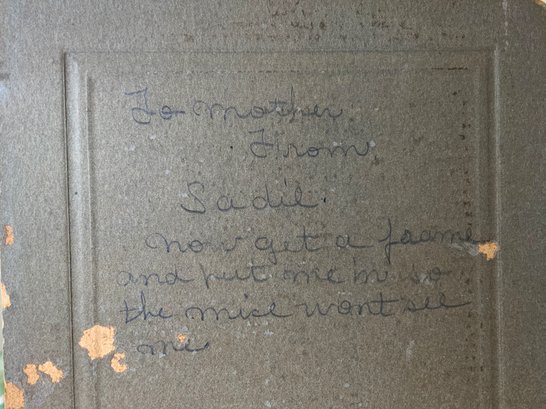 To mother
From
Sadie.
now get a frame
and put me in so
the mice wont see
me